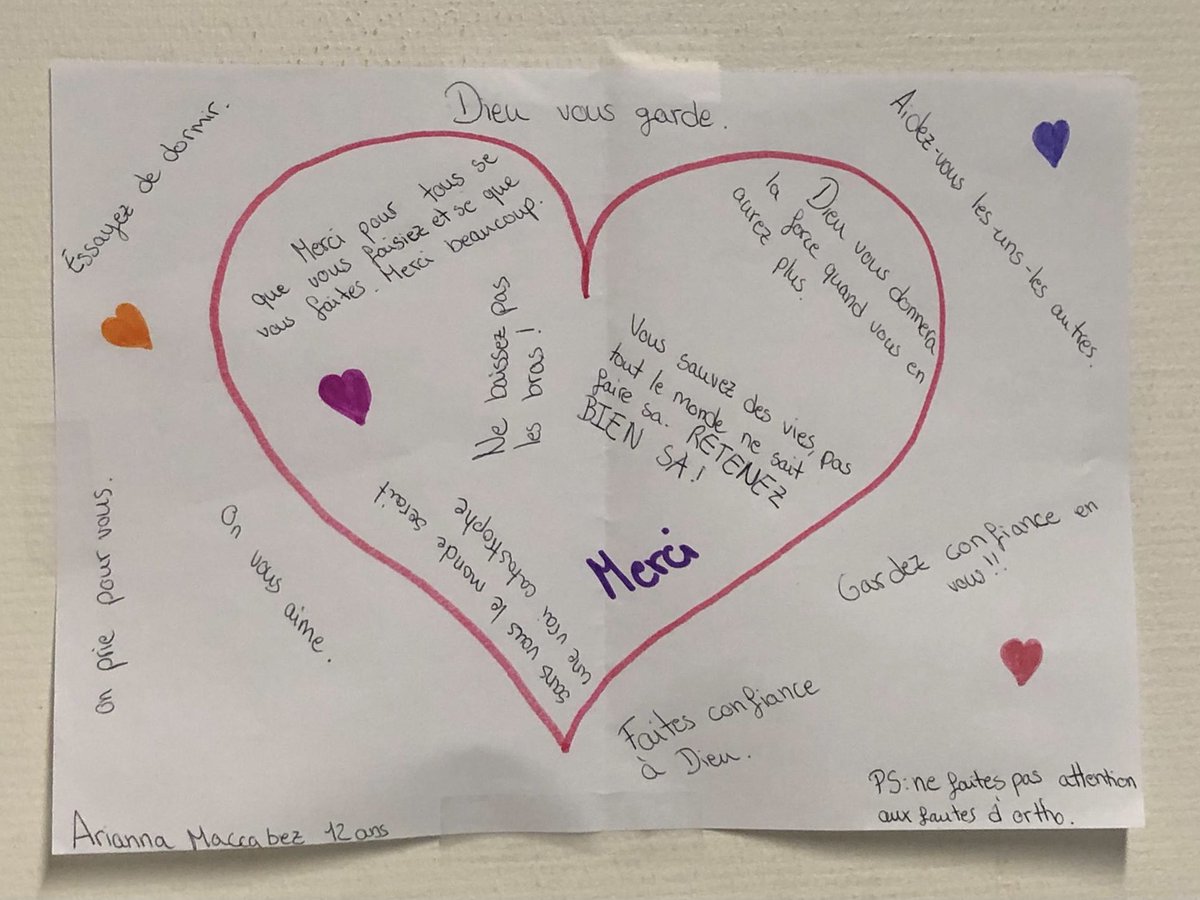 Dieu vous garde.
Essayez de dormir.
Aidez-vous les-uns-les autres.
Merci pour tous se
que vous faisiez et se que
vous faites. Merci beaucoup.
Dieu vous donnera
la force quand vous en
aurez plus.
Ne baissez pas
les bras !
Vous sauvez des vies, pas
tout le monde ne sait
faire sa. RETENEZ
BIEN SA !
sans vous le monde serait
une vrai catastrophe
Merci
On prie pour vous.
On vous aime.
Gardez confiance en
vous !!
Faites confiance
à Dieu.
PS: ne faites pas attention
aux fautes d'ortho.
Arianna Maccabez 12 ans